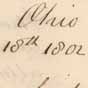 Ohio
18th 1802